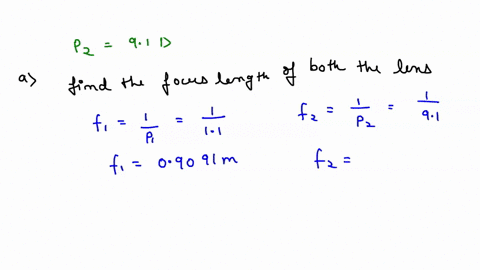 P2 = 9.1 D
a> find the focus length of both the lens
f1 = 1/P1 = 1/1.1 f2 = 1/P2 = 1/9.1
f1 = 0.9091m f2 =